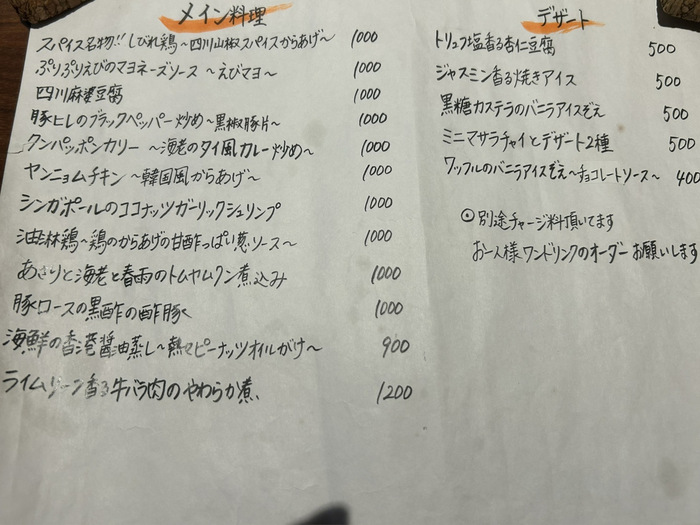 メイン料理
スパイス名物!! しびれ鶏〜四川山椒スパイスからあげ〜 1000
ぷりぷりえびのマヨネーズソース 〜えびマヨ〜 1000
四川麻婆豆腐 1000
豚ヒレのブラックペッパー炒め〜黒椒豚片〜 1000
クンパッポンカリー 〜海老のタイ風カレー炒め〜 1000
ヤンニョムチキン 〜韓国風からあげ〜 1000
シンガポールのココナッツガーリックシュリンプ 1000
油淋鶏〜鶏のからあげの甘酢っぱい葱ソース〜 1000
あさりと海老と春雨のトムヤムクン煮込み 1000
豚ロースの黒酢の酢豚 1000
海鮮の香港醤油蒸し〜熱々ピーナッツオイルがけ〜 900
ライムリーフ香る牛バラ肉のやわらか煮 1200
デザート
トリュフ塩香る杏仁豆腐 500
ジャスミン香る焼きアイス 500
黒糖カステラのバニラアイスぞえ 500
ミニマサラチャイとデザート2種 500
ワッフルのバニラアイスぞえ〜チョコレートソース〜 400
◎別途チャージ料頂いてます
お一人様ワンドリンクのオーダーお願いします